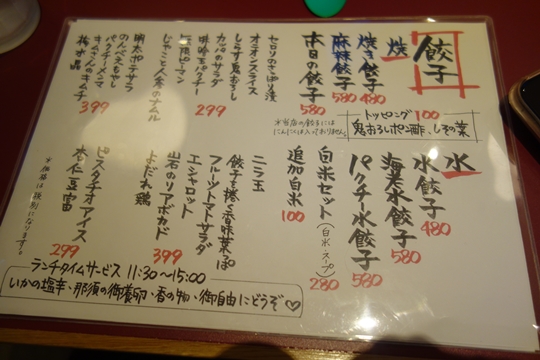 餃子
焼
焼き餃子 480
麻辣餃子 580
本日の餃子 580
トッピング 100
鬼おろしポン酢、しその葉
※当店の餃子には
にんにくは入っておりません。
セロリのさっぱり漬
オニオンスライス
しらす鬼おろし
カッパのサラダ
味玉パクチー
299
無限ピーマン
じゃこと人参のナムル
明太ポテサラ
のんべえもやし
パクチーメンマ
キムさんのキムチ
梅水晶
399
水
水餃子 480
海老水餃子 580
パクチー水餃子 580
白米セット(白米・スープ) 280
追加白米 100
ニラ玉
餃子を捲く香味葉っぱ
フルーツトマトサラダ
エシャロット
岩石のリアボカド
よだれ鶏
399
ピスタチオアイス
杏仁豆腐
299
※価格は税別になります。
ランチタイムサービス 11:30〜15:00
いかの塩辛・那須の御養卵・香の物・御自由にどうぞ♡